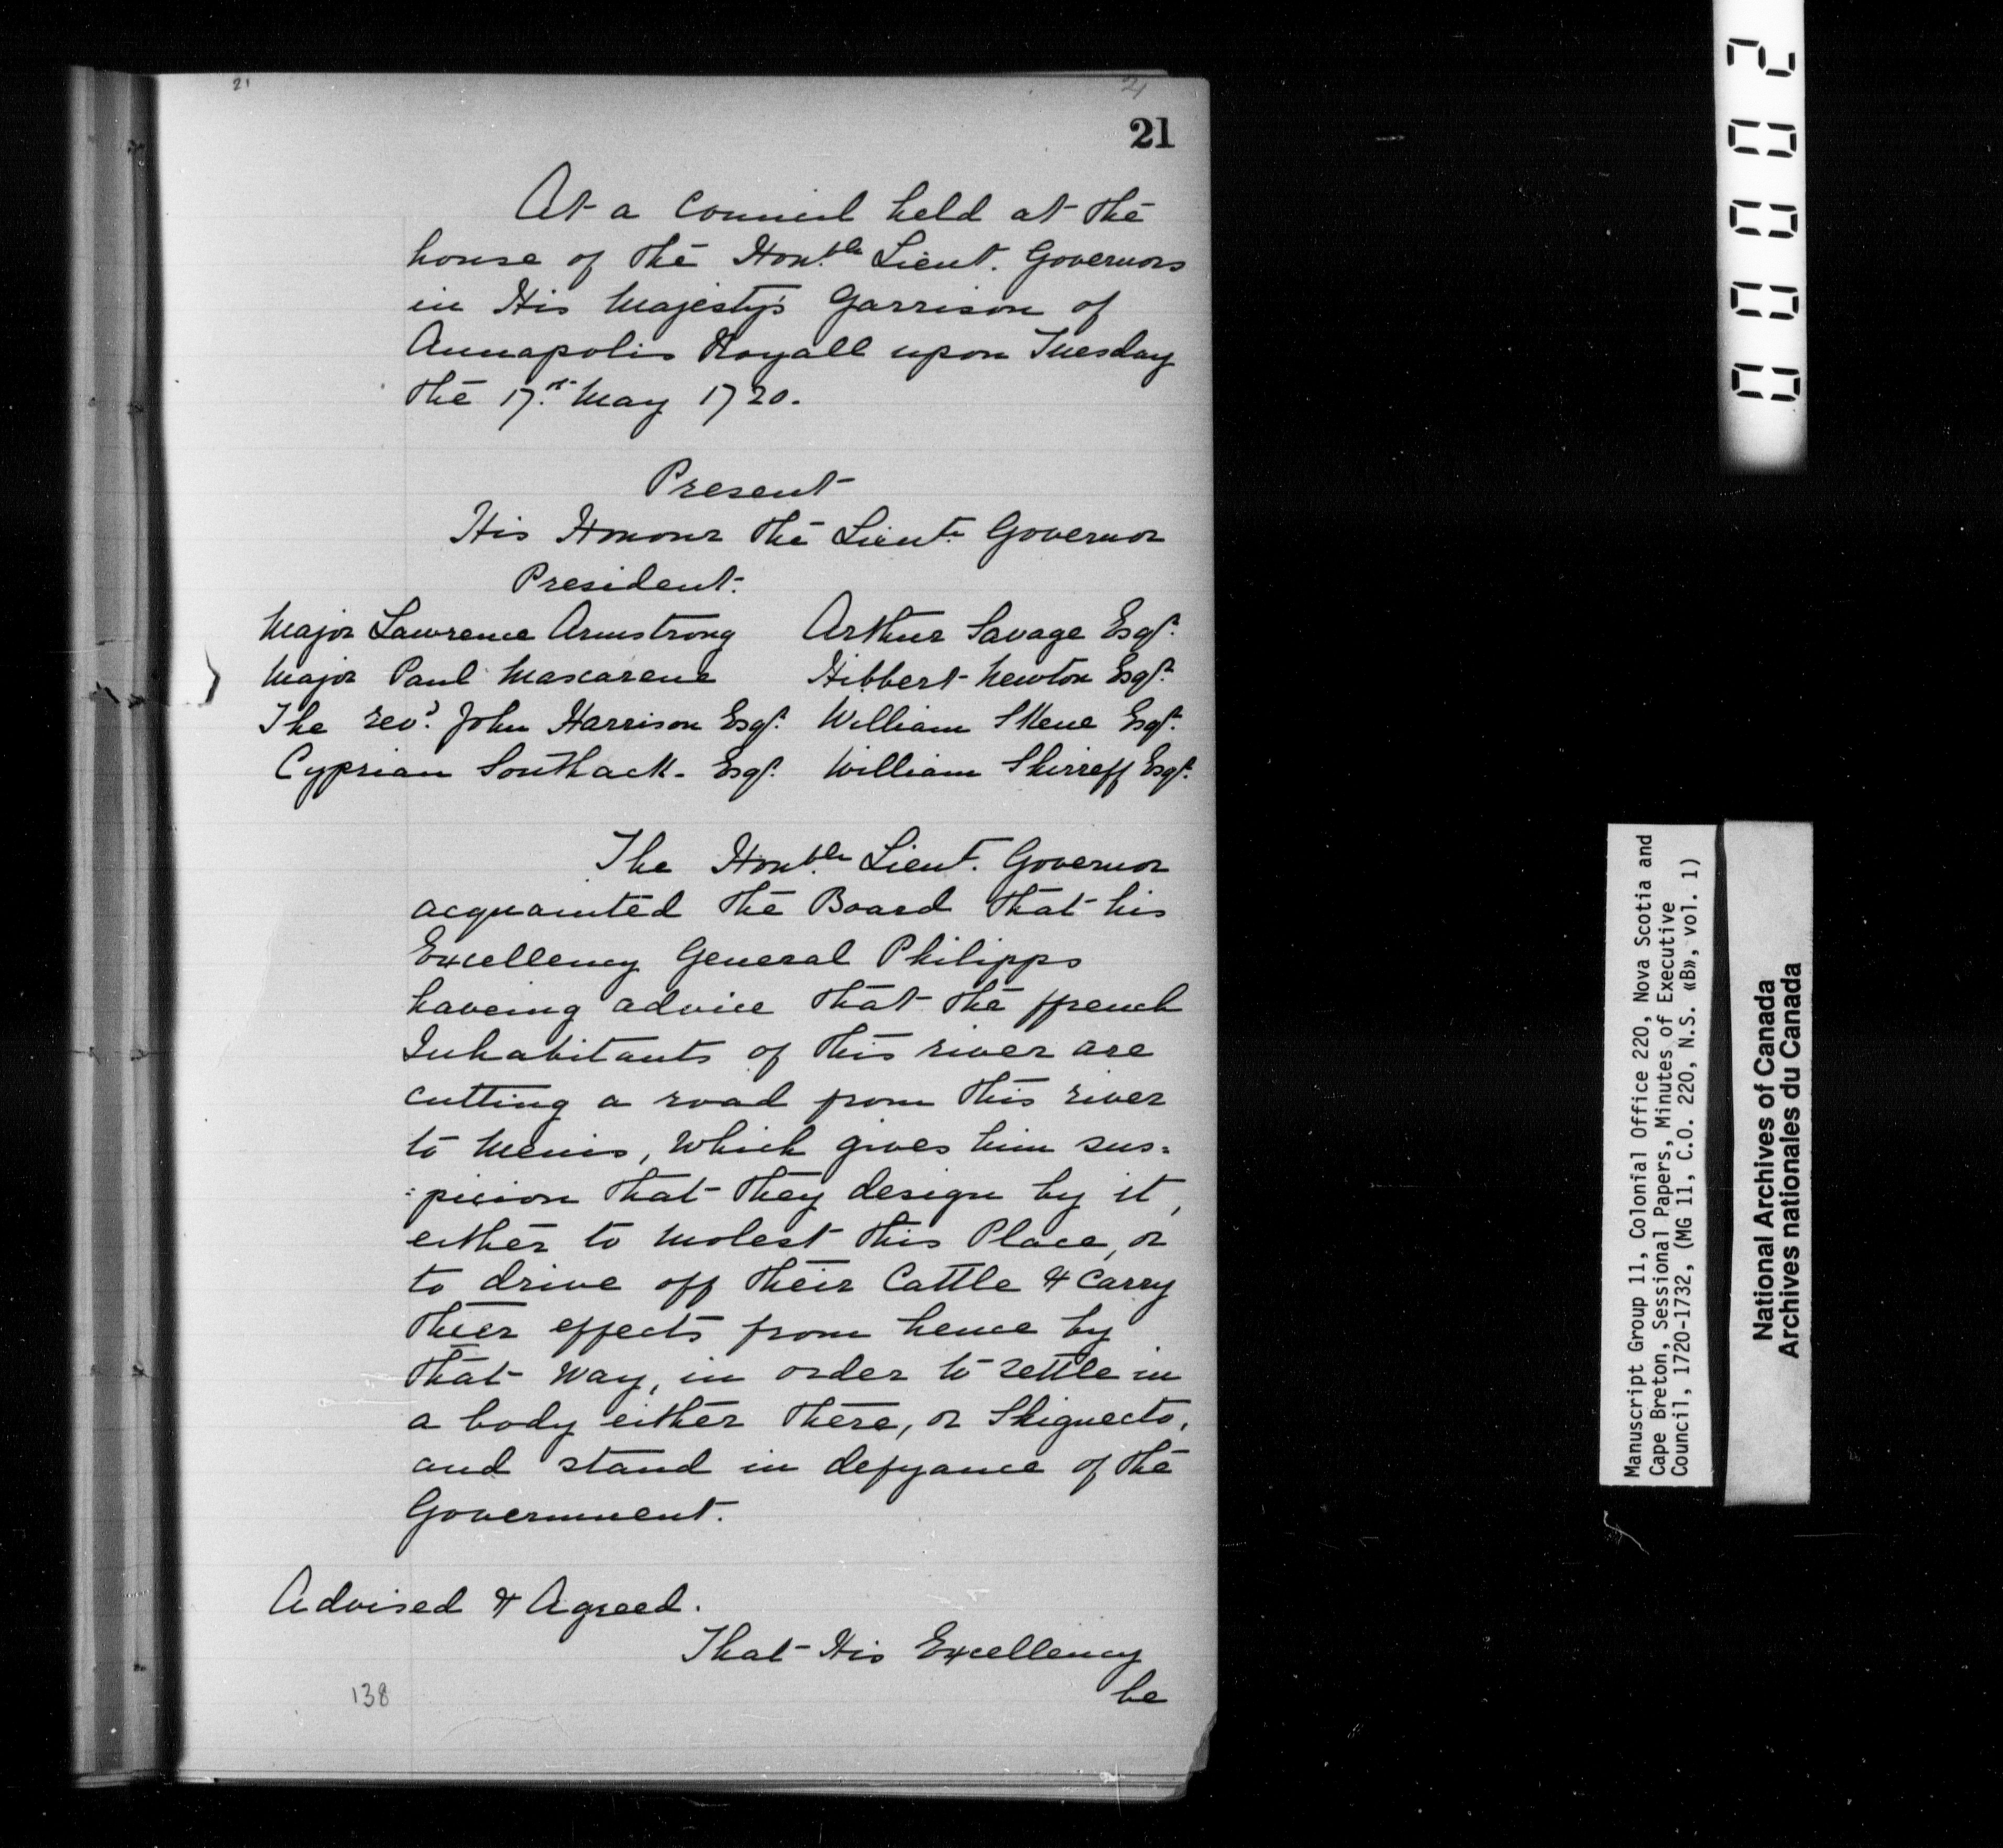 21
21
21
At a Council held at the
house of the Hon.ble Lieut. Governors
in His Majesty's Garrison of
Annapolis Royall upon Tuesday
the 17.th May 1720.
Present
His Honour the Lieut. Governor
President.
Major Lawrence Armstrong Arthur Savage Esqr.
Major Paul Mascarene Hibbert Newton Esqr.
The revd. John Harrison Esqr. William Skene Esqr.
Cyprian Southack Esqr. William Shirreff Esqr.
The Hon.ble Lieut. Governor
acquainted the Board that his
Excellency General Philipps
haveing advice that the ffrench
Inhabitants of this river are
cutting a road from this river
to Menis, which gives him sus=
:picion that they design by it,
either to molest this Place, or
to drive off their Cattle & Carry
their effects from hence by
that way, in order to settle in
a body either there, or Shignecto,
and stand in defyance of the
Government.
Advised & Agreed.
That His Excellency
be
138
00002
Manuscript Group 11, Colonial Office 220, Nova Scotia and
Cape Breton, Sessional Papers, Minutes of Executive
Council, 1720-1732, (MG 11, C.O. 220, N.S. «B», vol. 1)
National Archives of Canada
Archives nationales du Canada